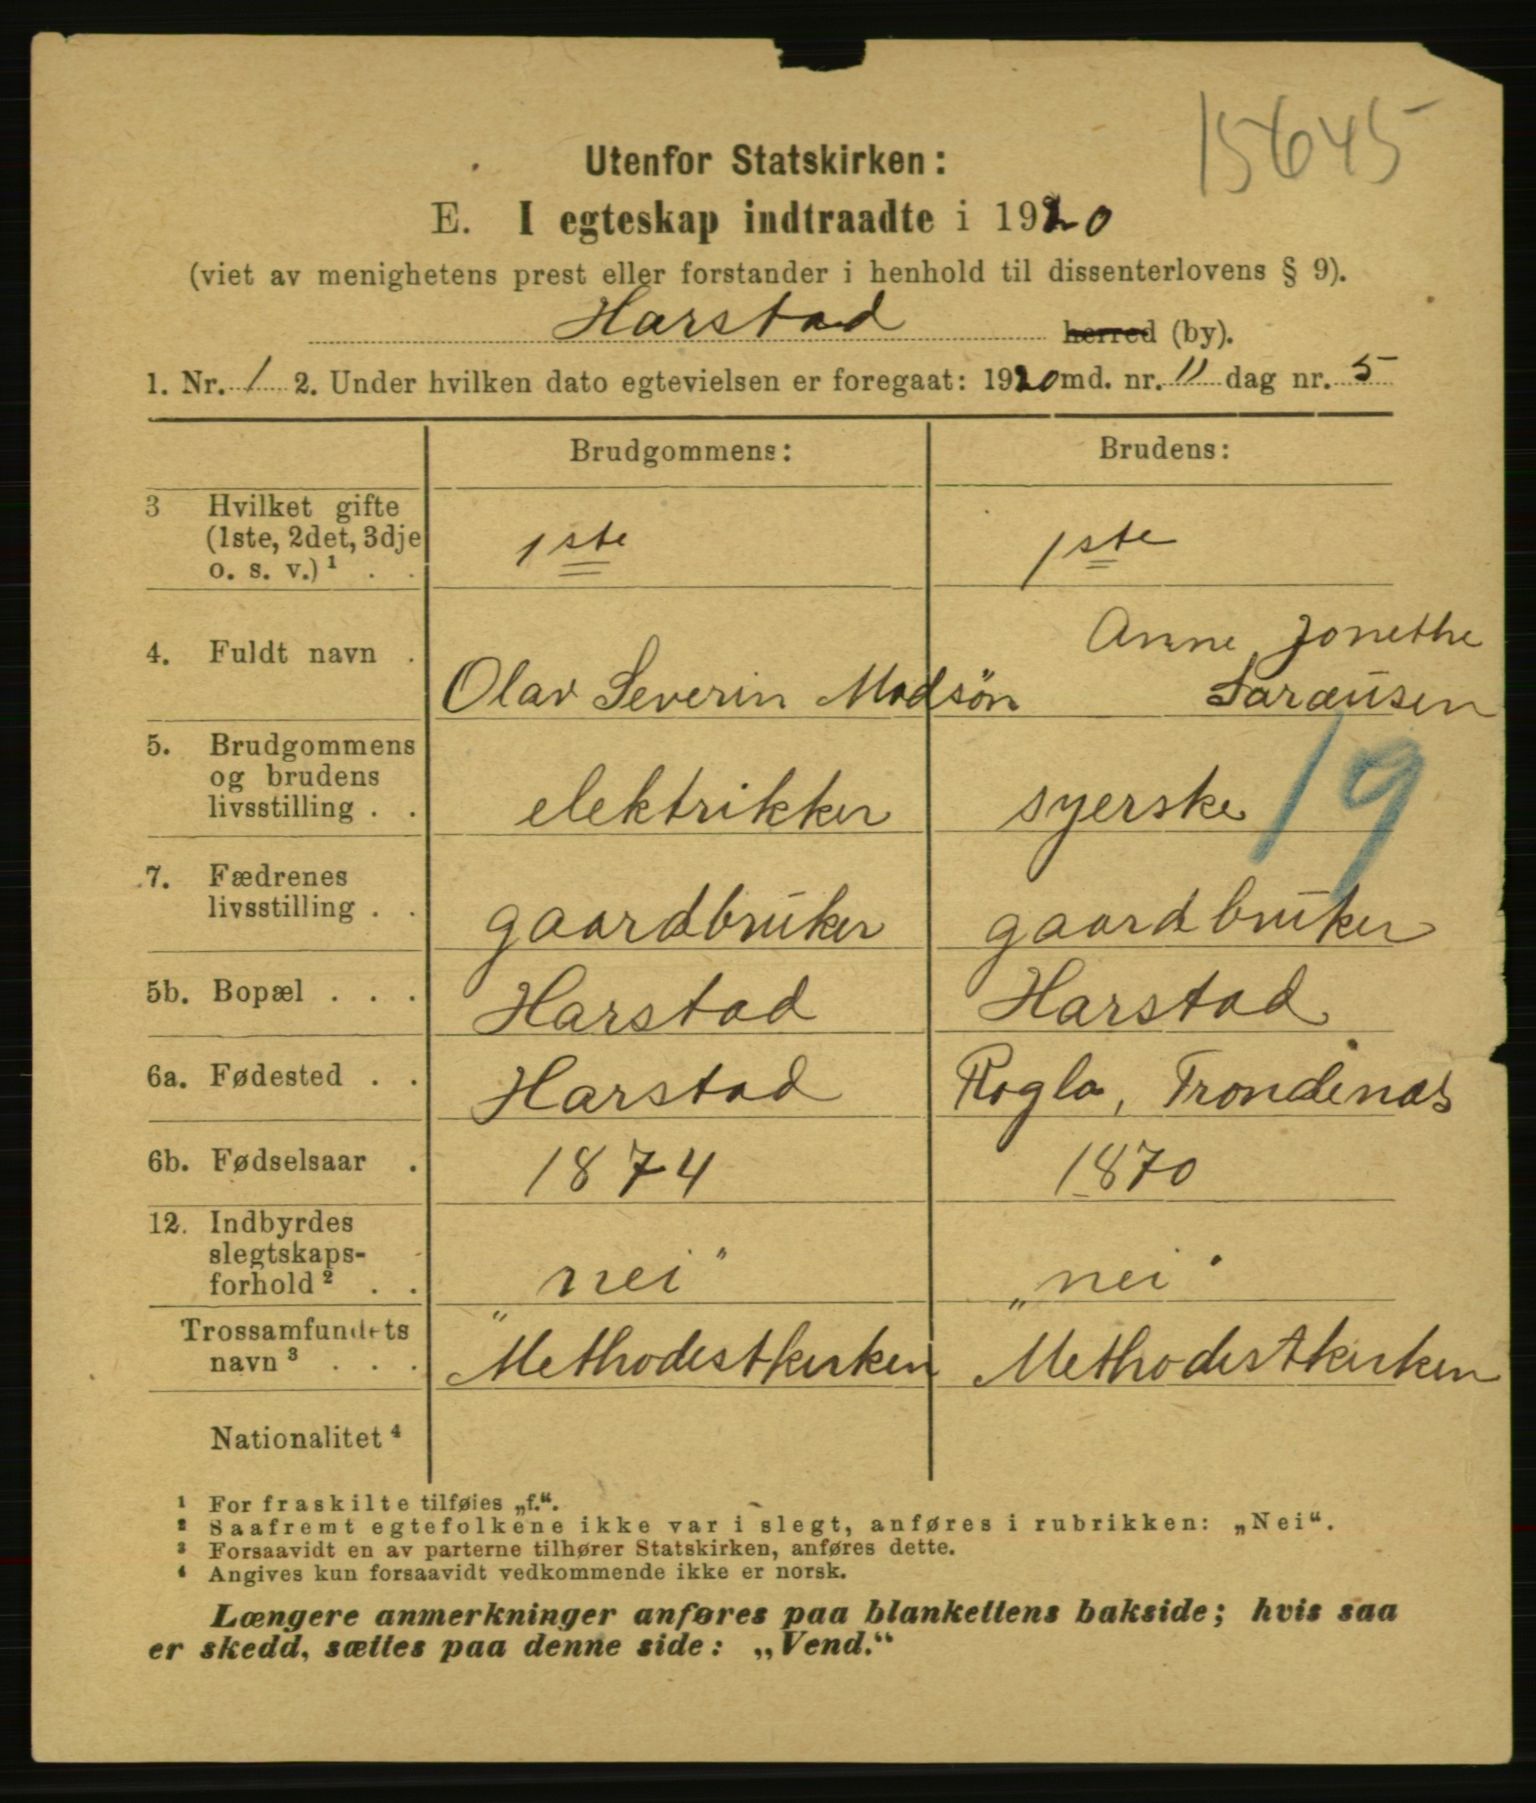 15645
Utenfor Statskirken:
E. I egteskap indtraadte i 1920
(viet av menighetens prest eller forstander i henhold til dissenterlovens § 9).
Harstad herred (by).
1. Nr. 1 2. Under hvilken dato egtevielsen er foregaat: 1920 md. nr. 11 dag nr. 5
Brudgommens: Brudens:
3 Hvilket gifte
(1ste, 2det, 3dje
o. s. v.)¹ . . 1ste 1ste
Anne Jonethe
4. Fuldt navn . Olav Severin Madsön Saraüsen
5. Brudgommens
og brudens
livsstilling . . elektrikker syerske
19
7. Fædrenes
livsstilling . . gaardbrüker gaardbrüker
5b. Bopæl . . . Harstad Harstad
6a. Fødested . . Harstad Rogla, Trondenas
6b. Fødselsaar . 1874 1870
12. Indbyrdes
slegtskaps-
forhold² . . „nei" „nei"
Trossamfundets
navn³ . . . Methodistkirken Methodistkirken
Nationalitet⁴
¹ For fraskilte tilføies „f.“.
² Saafremt egtefolkene ikke var i slegt, anføres i rubrikken: „Nei“.
³ Forsaavidt en av parterne tilhører Statskirken, anføres dette.
⁴ Angives kun forsaavidt vedkommende ikke er norsk.
Længere anmerkninger anføres paa blankettens bakside; hvis saa
er skedd, sættes paa denne side: „Vend.“